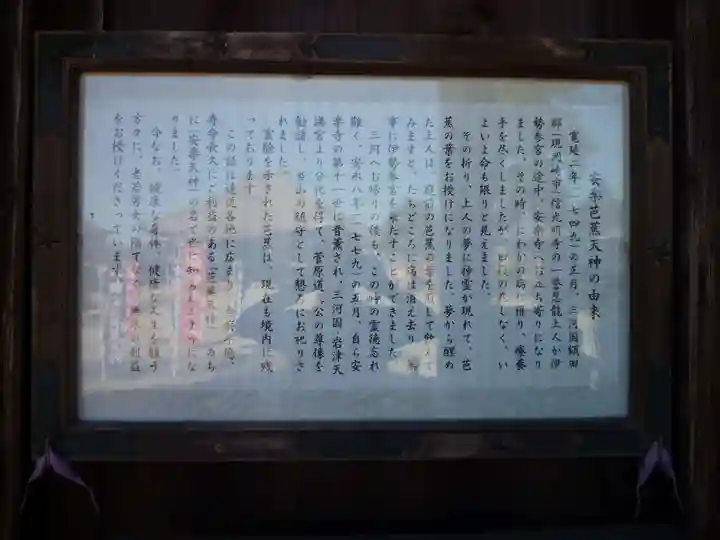 安楽芭蕉天神の由来
寛延二年(一七四九)の正月、三河国額田
郡(現岡崎市)信光明寺の一誉恵龍上人が伊
勢参宮の途中、安楽寺へお立ち寄りになり
ました。その時、にわかの病に罹り、療養
手を尽くしましたが、回復の兆しなく、い
よいよ命も限りと見えました。
その折り、上人の夢に神霊が現れて、芭
蕉の葉をお授けになりました。夢から醒め
た上人は、庭前の芭蕉の葉を煎じて飲んで
みますと、たちどころに病は消え去り、無
事に伊勢参宮を果たすことができました。
三河へお帰りの後も、この時の霊徳忘れ
難く、安永八年(一七七九)の五月、自ら安
楽寺の第十一世に晋薫され、三河国・岩津天
満宮より分化を得て、菅原道真公の尊像を
勧請し、当山の鎮守として懇ろにお祀りさ
れました。
霊験を示された芭蕉は、現在も境内に残
っております。
この話は遠近各地に広まり、
寿命長久にご利益のある「芭蕉天神」のち
に「安楽天神」の名で世に知られるようにな
りました。
今なお、健康な身体、健康な人生を願う
方々に、老若男女の隔てなく、無量の利益
をお授けくださっています。